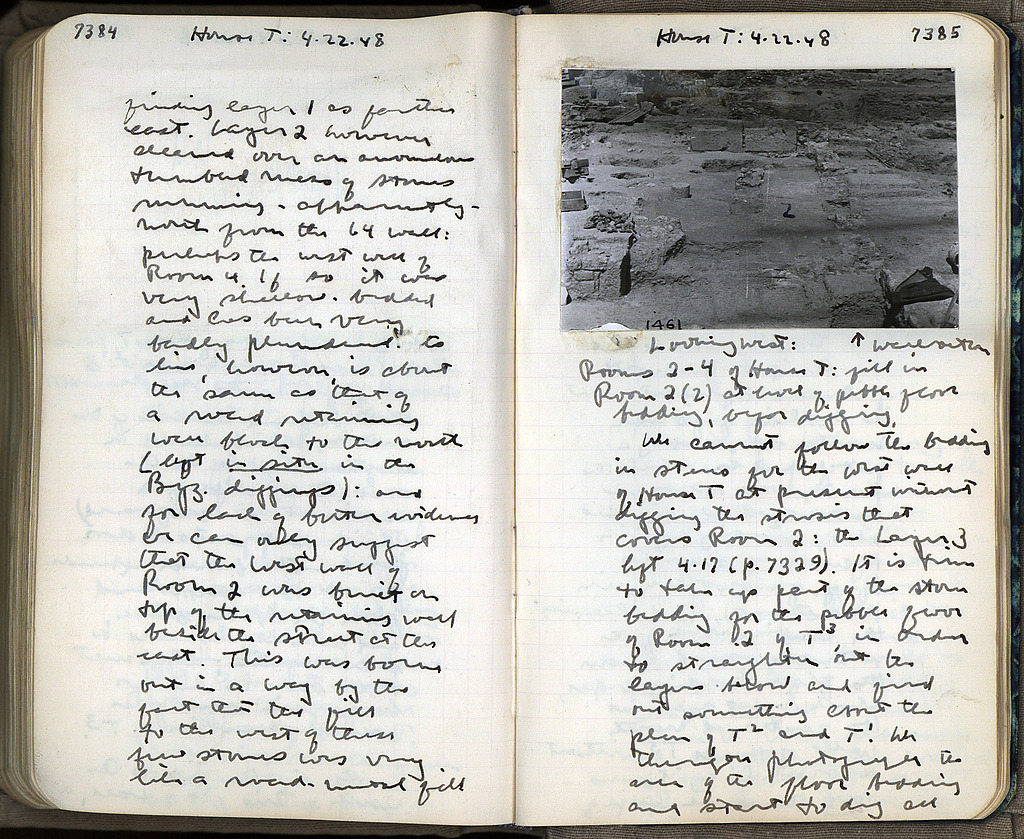 7384
House T: 4.22.48
finding layer 1 as further
east. Layer 2 however
cleared over an anomalous
tumbled mass of stones
running - apparently -
north from the 64 wall:
perhaps the west wall of
Room 4. If so it was
very shallow-bedded
and has been very
badly plundered. Its
line, however, is about
the same as that of
a road retaining
wall block to the north
(left in situ in the
Byz. diggings): and
for lack of better evidence
we can only suggest
that the west wall of
Room 2 was built on
top of the retaining wall
beside the street at the
east. This was borne
out in a way by the
fact that the fill
to the west of these
few stones was very
like a road-metal fill
House T: 4.22.48
7385
2
1461
Looking west: ↑
Rooms 2-4 of House T: fill in
Room 2 (2) at level of pebble floor
bedding, before digging.
We cannot follow the bedding
in stones for the west wall
of House T at present without
digging the strosis that
covers Room 2: the Layer 3
left 4.17 (p. 7329). It is time
to take up part of the stone
bedding for the pebble floor
of Room 2 of T³, in order
to straighten out the
layers below and find
out something about the
plan of T² and T¹. We
therefore photograph the
area of the floor bedding
and start to dig all